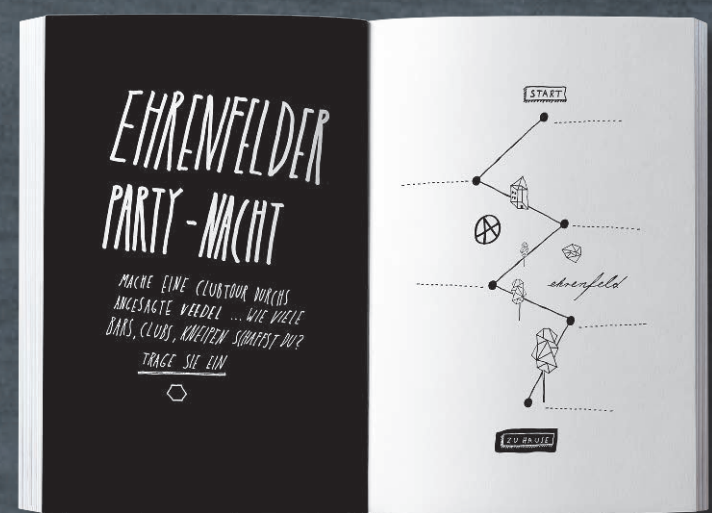 EHRENFELDER
PARTY - NACHT
MACHE EINE CLUBTOUR DURCHS
ANGESAGTE VEEDEL ... WIE VIELE
BARS, CLUBS, KNEIPEN SCHAFFST DU?
TRAGE SIE EIN
START
ehrenfeld
ZU HAUSE